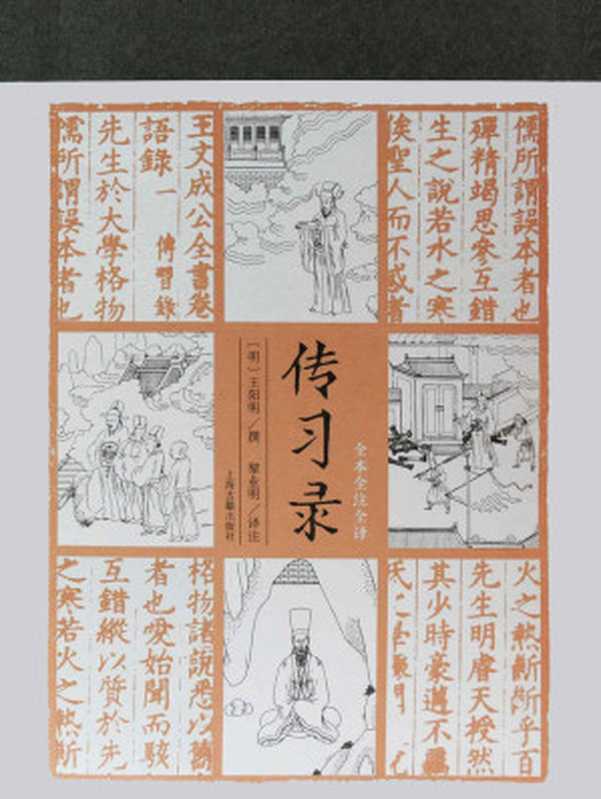 传习录
全本全注全译
〔明〕王阳明／撰 黎业明／译注
上海古籍出版社
儒所謂誤本者也
殫精竭思參互錯
生之說若水之寒
俟聖人而不惑者
王文成公全書卷
語錄一 傳習錄
先生於大學格物
儒所謂誤本者也
火之熱斷斷乎百
先生明睿天授然
其少時豪邁不
格物諸說悉以
者也愛始聞而駭
互錯縱以質於先
之寒若火之熱斷